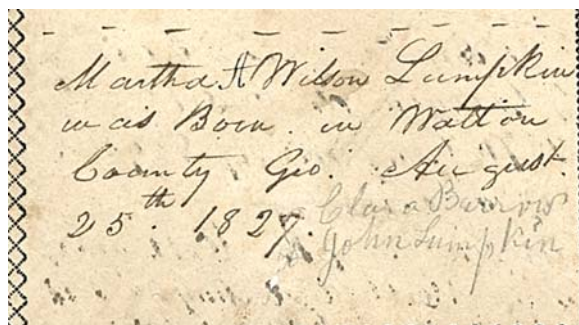 Martha A Wilson Lumpkin
was Born. in Walton
County Geo. August.
25th. 1827.
Clara Barrow
John Lumpkin